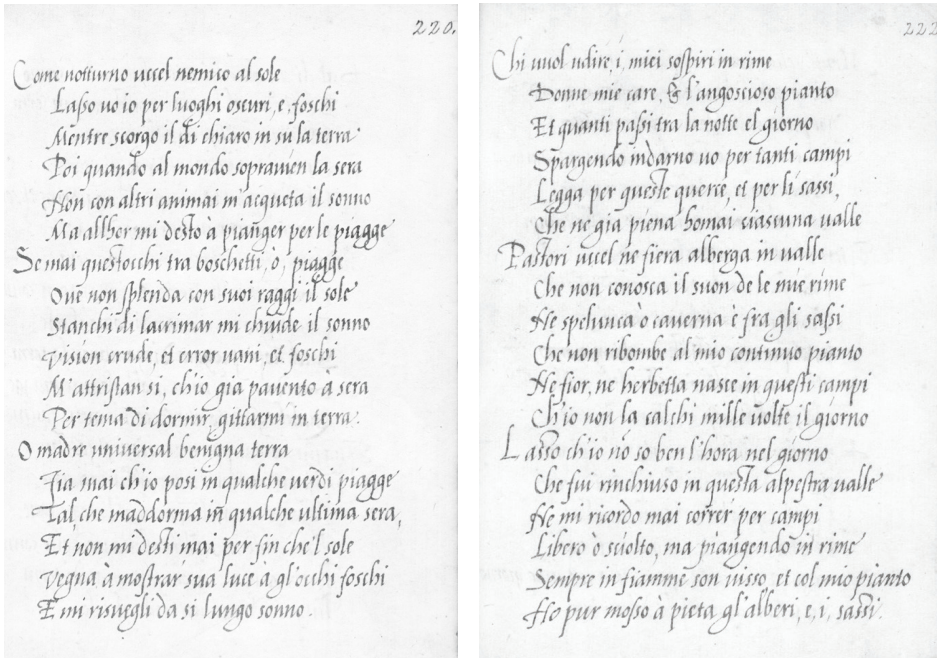 220.
Come notturno uccel nemico al sole
Lasso uo io per luoghi oscuri, e, foschi
Mentre scorgo il di chiaro in su la terra
Poi quando al mondo soprauien la sera
Non con altri animai m acqueta il sonno
Ma allhor mi desto à pianger per le piagge
Se mai quest occhi tra boschetti, ò, piagge
Oue non splenda con suoi raggi il sole
Stanchi di lacrimar mi chiude il sonno
Vision crude, et error uani, et foschi
M'attristan si, ch'io gia pauento à sera
Per tema di dormir, gittarmi in terra.
O madre uniuersal benigna terra
Fia mai ch'io posi in qualche uerdi piagge
Tal che m'addorma in qualche ultima sera,
Et non mi desti mai per fin che'l sole
Vegna à mostrar sua luce à gl'occhi foschi
E mi risuegli da si lungo sonno.
222
Chi uuol udire, i, miei sospiri in rime
Donne mie care, & l'angoscioso pianto
Et quanti passi tra la notte el giorno
Spargendo indarno uo per tanti campi
Legga per queste querce, et per li sassi,
Che n'e gia piena homai ciascuna ualle
Pastori uccel ne fiera alberga in ualle
Che non conosca il suon de le mie rime
Ne spelunca ò cauerna è fra gli sassi
Che non ribombe al mio continuo pianto
Ne fior, ne herbetta nasce in questi campi
Ch'io non la calchi mille uolte il giorno
Lasso ch'io nõ so ben l'hora nel giorno
Che fui rinchiuso in questa alpestra ualle
Ne mi ricordo mai correr per campi
Libero ò sciolto, ma piangendo in rime
Sempre in fiamme son uisso, et col mio pianto
Ho pur mosso à pieta gl'alberi, e, i, sassi.